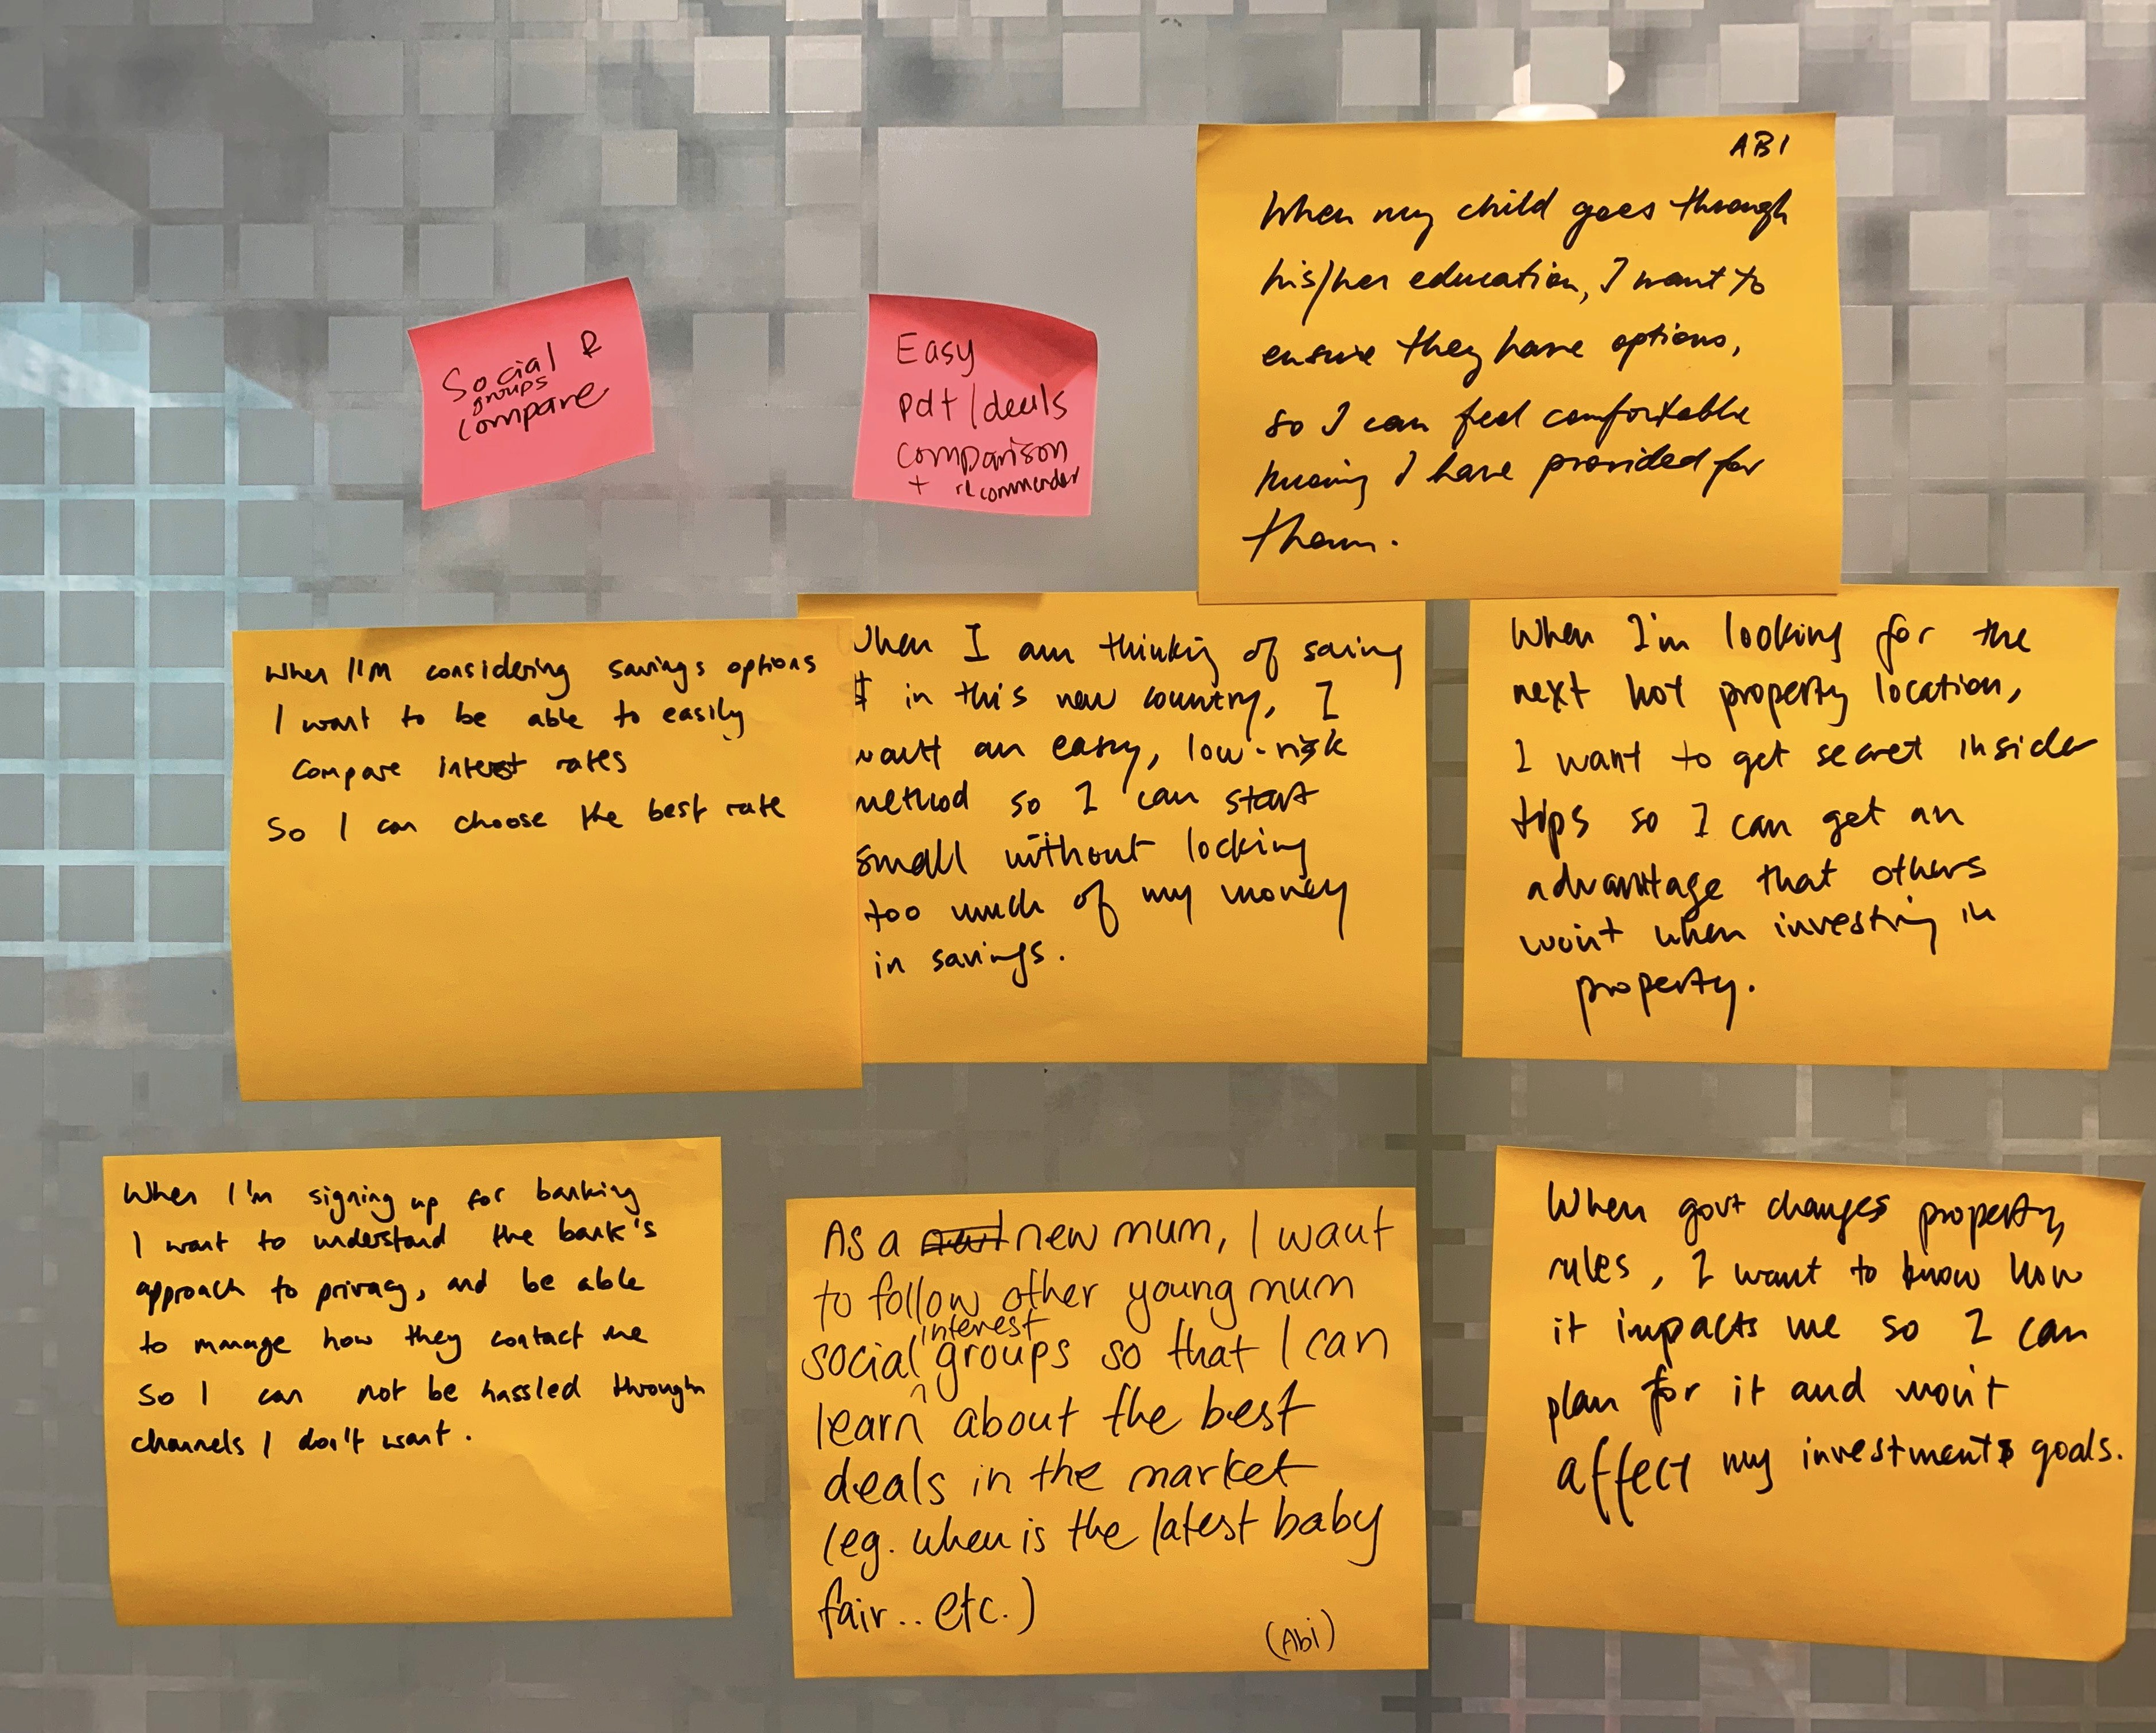 Social &
groups
compare
Easy
pdt/deals
comparison
+ recommender
ABI
When my child goes through
his/her education, I want to
ensure they have options,
so I can feel comfortable
knowing I have provided for
them.
When I'm considering savings options
I want to be able to easily
compare interest rates
So I can choose the best rate
When I am thinking of saving
$ in this new country, I
want an easy, low-risk
method so I can start
small without locking
too much of my money
in savings.
When I'm looking for the
next hot property location,
I want to get secret insider
tips so I can get an
advantage that others
won't when investing in
property.
When I'm signing up for banking
I want to understand the bank's
approach to privacy, and be able
to manage how they contact me
So I can not be hassled through
channels I don't want.
As a new mum, I want
to follow other young mum
social interest groups so that I can
learn about the best
deals in the market
(eg. when is the latest baby
fair.. etc.)
(Abi)
When govt changes property
rules, I want to know how
it impacts me so I can
plan for it and won't
affect my investments goals.